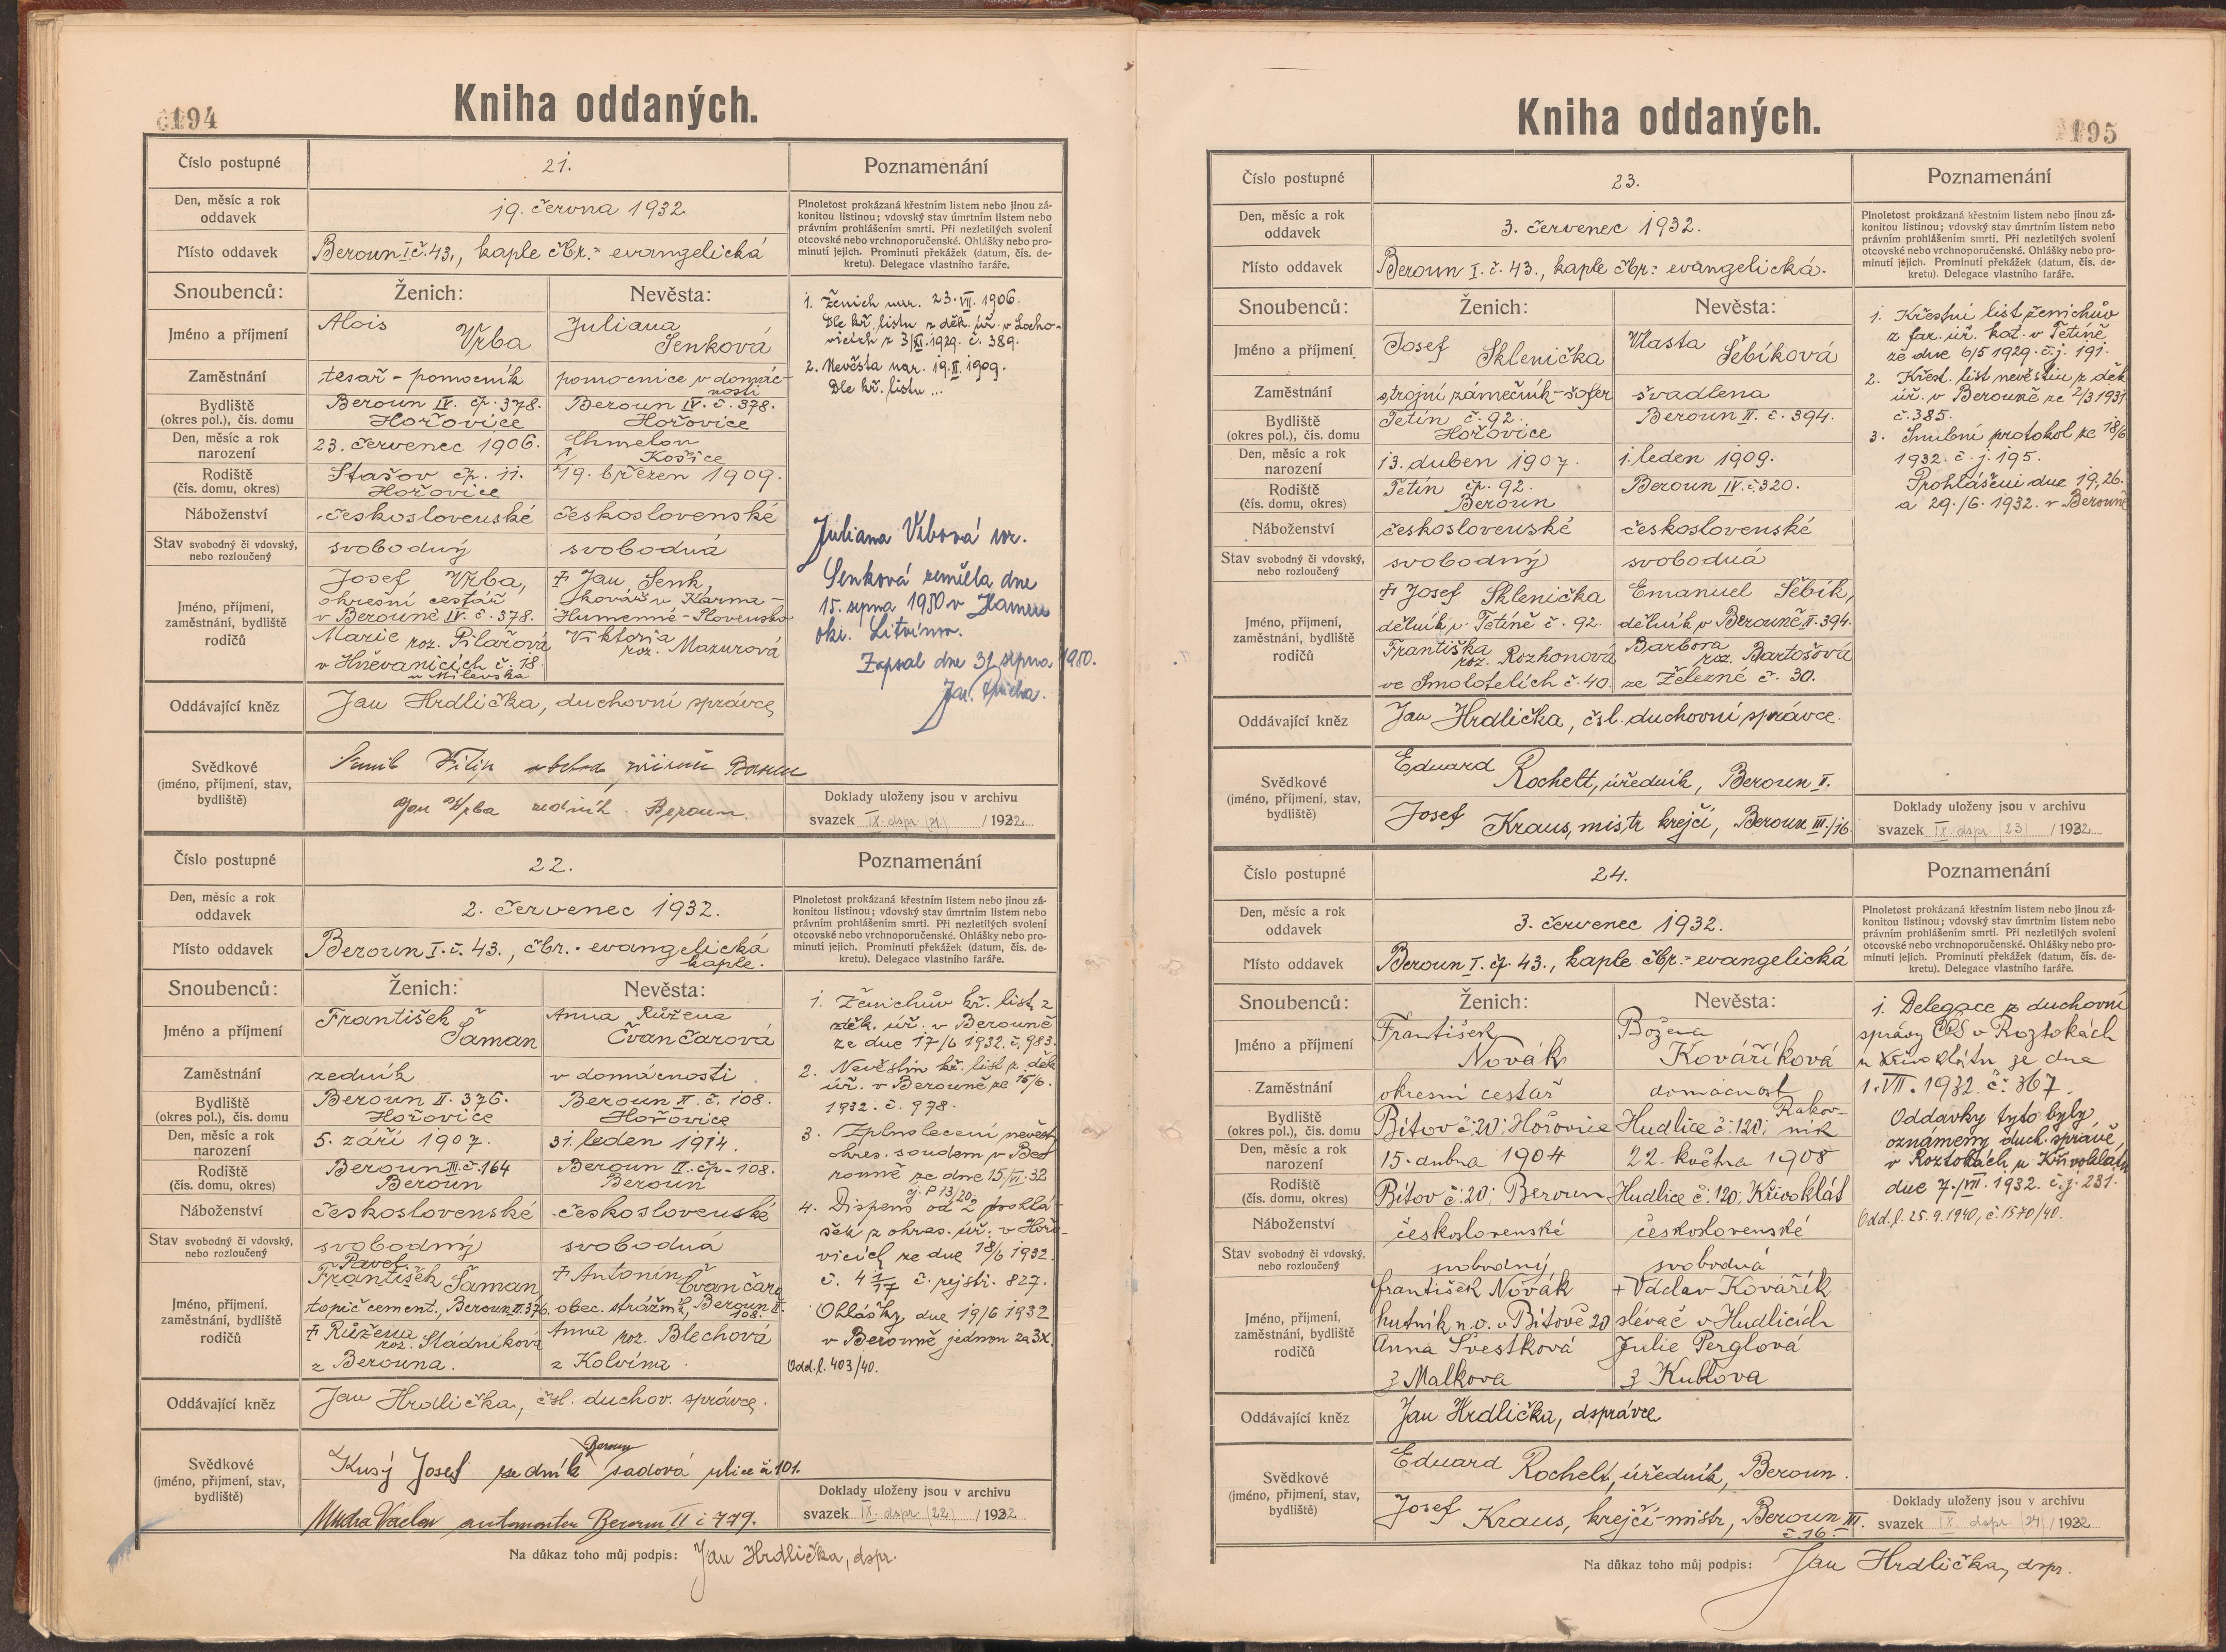 194
Kniha oddaných.
Číslo postupné
21.
Poznamenání
Den, měsíc a rok
oddavek
19. června 1932
Plnoletost prokázaná křestním listem nebo jinou zá-
konitou listinou; vdovský stav úmrtním listem nebo
právním prohlášením smrti. Při nezletilých svolení
otcovské nebo vrchnoporučenské. Ohlášky nebo pro-
minutí jejich. Prominutí překážek (datum, čís. de-
kretu). Delegace vlastního faráře.
Místo oddavek
Beroun I č. 43., kaple čbr.= evangelická
Snoubenců:
Ženich:
Nevěsta:
Jméno a příjmení
Alois
Vrba
Juliana
Senková
Zaměstnání
tesař - pomocník
pomocnice v domác-
nosti
Bydliště
(okres pol.), čís. domu
Beroun IV. čp. 378.
Hořovice
Beroun IV. č. 378.
Hořovice
Den, měsíc a rok
narození
23. červenec 1906.
Chmelov
Košice
Rodiště
(čís. domu, okres)
Stašov čp. 11.
Hořovice
19. březen 1909.
Náboženství
československé
československé
Stav svobodný či vdovský,
nebo rozloučený
svobodný
svobodná
Jméno, příjmení,
zaměstnání, bydliště
rodičů
Josef Vrba,
okresní cestář
v Berouně IV. č. 378.
Marie roz. Pilařová
v Hněvanicích č. 18
u Milevska
‡ Jan Senk,
kovář v Karma-
Humenné-Slovensko
Viktoria
roz. Mazurová
1. Ženich nar. 23. VII. 1906.
Dle kř. listu z děk. úř. v Locho-
vicích z 3/XI. 1929. č. 389.
2. Nevěsta nar. 19. III. 1909.
Dle kř. listu ...
Juliana Vrbová roz.
Senková zemřela dne
15. srpna 1950 v Hamru
okr. Litvínov.
Zapsal dne 31 srpna 1950.
Oddávající kněz
Jan Hrdlička, duchovní správce
Svědkové
(jméno, příjmení, stav,
bydliště)
Filip
Jan Vrba zedník. Beroun.
Doklady uloženy jsou v archivu
svazek IX. dspr. (21) /1932
Číslo postupné
22.
Poznamenání
Den, měsíc a rok
oddavek
2. červenec 1932.
Plnoletost prokázaná křestním listem nebo jinou zá-
konitou listinou; vdovský stav úmrtním listem nebo
právním prohlášením smrti. Při nezletilých svolení
otcovské nebo vrchnoporučenské. Ohlášky nebo pro-
minutí jejich. Prominutí překážek (datum, čís. de-
kretu). Delegace vlastního faráře.
Místo oddavek
Beroun I. č. 43., čbr.- evangelická
kaple.
Snoubenců:
Ženich:
Nevěsta:
Jméno a příjmení
František
Šaman
Anna Růžena
Čvančarová
Zaměstnání
zedník
v domácnosti
Bydliště
(okres pol.), čís. domu
Beroun II. 376.
Hořovice
Beroun II. č. 108.
Hořovice
Den, měsíc a rok
narození
5. září 1907.
31. leden 1914.
Rodiště
(čís. domu, okres)
Beroun III. č. 164
Beroun
Beroun II. čp. 108.
Beroun
Náboženství
československé
československé
Stav svobodný či vdovský,
nebo rozloučený
svobodný
svobodná
Jméno, příjmení,
zaměstnání, bydliště
rodičů
Pavel
František Šaman
topič cement., Beroun II. 376.
‡ Růžena
roz. Sládníková
z Berouna.
‡ Antonín Čvančara
obec. strážník, Beroun II.
108.
Anna roz. Blechová
z Kolvína.
1. Ženichův kř. list z
děk. úř. v Berouně
ze dne 17/6 1932. č. 983.
2. Nevěstin kř. list z děk
úř. v Berouně ze 15/6.
1932. č. 978.
3. Zplnoletění nevěsty
okres. soudem v Be-
rouně ze dne 15/VI. 32
čj. P 13/20
4. Dispens od 2 prohlá-
šek z okres. úř. v Hořo-
vicích ze dne 18/6 1932.
č. 4 1/17 č. rejstř. 827.
Ohlášky dne 19/6 1932
v Berouně jednou za 3x.
Odd.l. 403/40.
Oddávající kněz
Jan Hrdlička, čsl. duchov. správce.
Svědkové
(jméno, příjmení, stav,
bydliště)
Beroun
Kusý Josef zedník sadová ulice č. 101.
Mudra Václav automontér Beroun II č 779.
Doklady uloženy jsou v archivu
svazek IX. dspr. (22) /1932
Na důkaz toho můj podpis: Jan Hrdlička, dspr.
195
Kniha oddaných.
Číslo postupné
23.
Poznamenání
Den, měsíc a rok
oddavek
3. červenec 1932.
Plnoletost prokázaná křestním listem nebo jinou zá-
konitou listinou; vdovský stav úmrtním listem nebo
právním prohlášením smrti. Při nezletilých svolení
otcovské nebo vrchnoporučenské. Ohlášky nebo pro-
minutí jejich. Prominutí překážek (datum, čís. de-
kretu). Delegace vlastního faráře.
Místo oddavek
Beroun I. č. 43., kaple čbr.= evangelická.
Snoubenců:
Ženich:
Nevěsta:
Jméno a příjmení
Josef
Sklenička
Vlasta
Šebíková
Zaměstnání
strojní zámečník-šofer
švadlena
Bydliště
(okres pol.), čís. domu
Tetín č. 92.
Hořovice
Beroun II. č. 394.
Den, měsíc a rok
narození
13. duben 1907.
1. leden 1909.
Rodiště
(čís. domu, okres)
Tetín čp. 92.
Beroun
Beroun IV. č. 320.
Náboženství
československé
československé
Stav svobodný či vdovský,
nebo rozloučený
svobodný
svobodná
Jméno, příjmení,
zaměstnání, bydliště
rodičů
‡ Josef Sklenička
dělník v Tetíně č. 92.
Františka
roz. Rozhonová
ve Smolotelích č. 40.
Emanuel Šebík,
dělník v Berouně II. 394.
Barbora
roz. Bartošová
ze Železné č. 30.
1. Křestní list ženichův
z far. úř. kat. v Tetíně
ze dne 6/5 1929. č.j. 191.
2. Křest. list nevěstin z děk
úř. v Berouně ze 4/3 1931
č. 385.
3. Snubní protokol ze 18/6
1932. č. j. 195.
Prohlášení dne 19., 26.
a 29./6. 1932. v Berouně
Oddávající kněz
Jan Hrdlička, čsl. duchovní správce.
Svědkové
(jméno, příjmení, stav,
bydliště)
Eduard
Rochelt, úředník, Beroun II.
Josef Kraus, mistr krejčí, Beroun III./16.
Doklady uloženy jsou v archivu
svazek IX. dspr. (23) /1932
Číslo postupné
24.
Poznamenání
Den, měsíc a rok
oddavek
3. červenec 1932.
Plnoletost prokázaná křestním listem nebo jinou zá-
konitou listinou; vdovský stav úmrtním listem nebo
právním prohlášením smrti. Při nezletilých svolení
otcovské nebo vrchnoporučenské. Ohlášky nebo pro-
minutí jejich. Prominutí překážek (datum, čís. de-
kretu). Delegace vlastního faráře.
Místo oddavek
Beroun I. čp. 43., kaple čbr.= evangelická
Snoubenců:
Ženich:
Nevěsta:
Jméno a příjmení
František
Novák
Božena
Kováříková
Zaměstnání
okresní cestář
domácnost
Bydliště
(okres pol.), čís. domu
Bítov č: 20; Hořovice
Hudlice č: 120; Rakov-
ník
Den, měsíc a rok
narození
15. dubna 1904
22. května 1908
Rodiště
(čís. domu, okres)
Bítov č: 20; Beroun
Hudlice č: 120; Křivoklát
Náboženství
československé
československé
Stav svobodný či vdovský,
nebo rozloučený
svobodný
svobodná
Jméno, příjmení,
zaměstnání, bydliště
rodičů
František Novák
hutník n. o. v Bítově 20
Anna Švestková
z Malkova
+ Václav Kovářík
slévač v Hudlicích
Julie Perglová
z Kublova
1. Delegace z duchovní
správy ČCS v Roztokách
u Křivoklátu ze dne
1. VII. 1932. č. 367.
Oddavky tyto byly
oznámeny duch. správě,
v Roztokách u Křivoklátu
dne 7./VII. 1932. č.j. 231.
Odd. l. 25.9.1940, č. 1570/40.
Oddávající kněz
Jan Hrdlička, dsprávce
Svědkové
(jméno, příjmení, stav,
bydliště)
Eduard Rochelt, úředník, Beroun.
Josef Kraus, krejčí-mistr, Beroun III.
č. 16.
Doklady uloženy jsou v archivu
svazek IX dspr. (24) /1932
Na důkaz toho můj podpis: Jan Hrdlička, dspr.